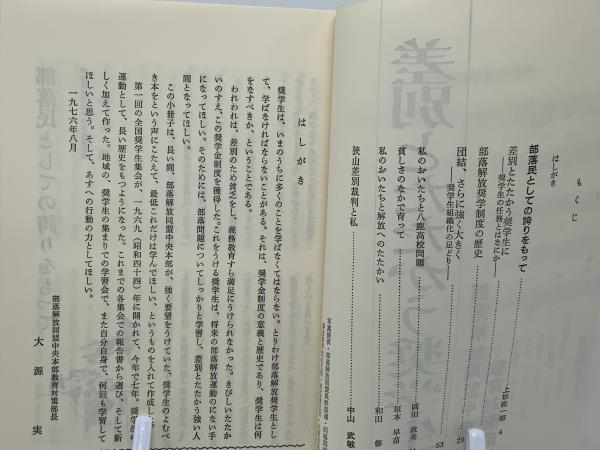 もくじ
はしがき
部落民としての誇りをもって
上杉佐一郎 4
差別とたたかう奨学生に
――奨学生の任務とはなにか――
部落解放奨学制度の歴史
29
団結、さらに強く大きく
――奨学生組織化の足どり――
53
私のおいたちと八鹿高校問題
岡田 政美
貧しさのなかで育って
垣本 早苗
私のおいたちと解放へのたたかい
和田 修
狭山差別裁判と私
中山 武敏
はしがき
奨学生は、いまのうちに多くのことを学ばなくてはならない。とりわけ部落解放奨学生とし
て、学ばなければならないことがある。それは、奨学金制度の意義と歴史であり、奨学生は何
をなすべきか、ということである。
われわれは、差別のため貧困をし、義務教育すら満足にうけられなかった。きびしいたたか
いのすえ、この奨学金制度を獲得した。これをうける奨学生は、将来の部落解放運動のにない手
になってほしい。そのためには、部落問題についてしっかりと学習し、差別とたたかう強い人
間となってほしい。
この小冊子は、長い間、部落解放同盟中央本部が、強く要望をうけていた、奨学生のよむべ
き本をという声にこたえて、最低これだけは学んでほしい、というものを入れて作成し
第一回の全国奨学生集会が、一九六九（昭和四十四）年に開かれて、今年で七年。奨学生の
運動として、長い歴史をもつようになった。これまでの各集会での報告書から選び、そして新
しく加えて作った。地域の、奨学生の集まりでの学習会で、また自分自身で、何回も学習して
ほしいと思う。そして、あすへの行動の力としてほしい。
一九七六年八月
部落解放同盟中央本部教育対策部長
大源 実